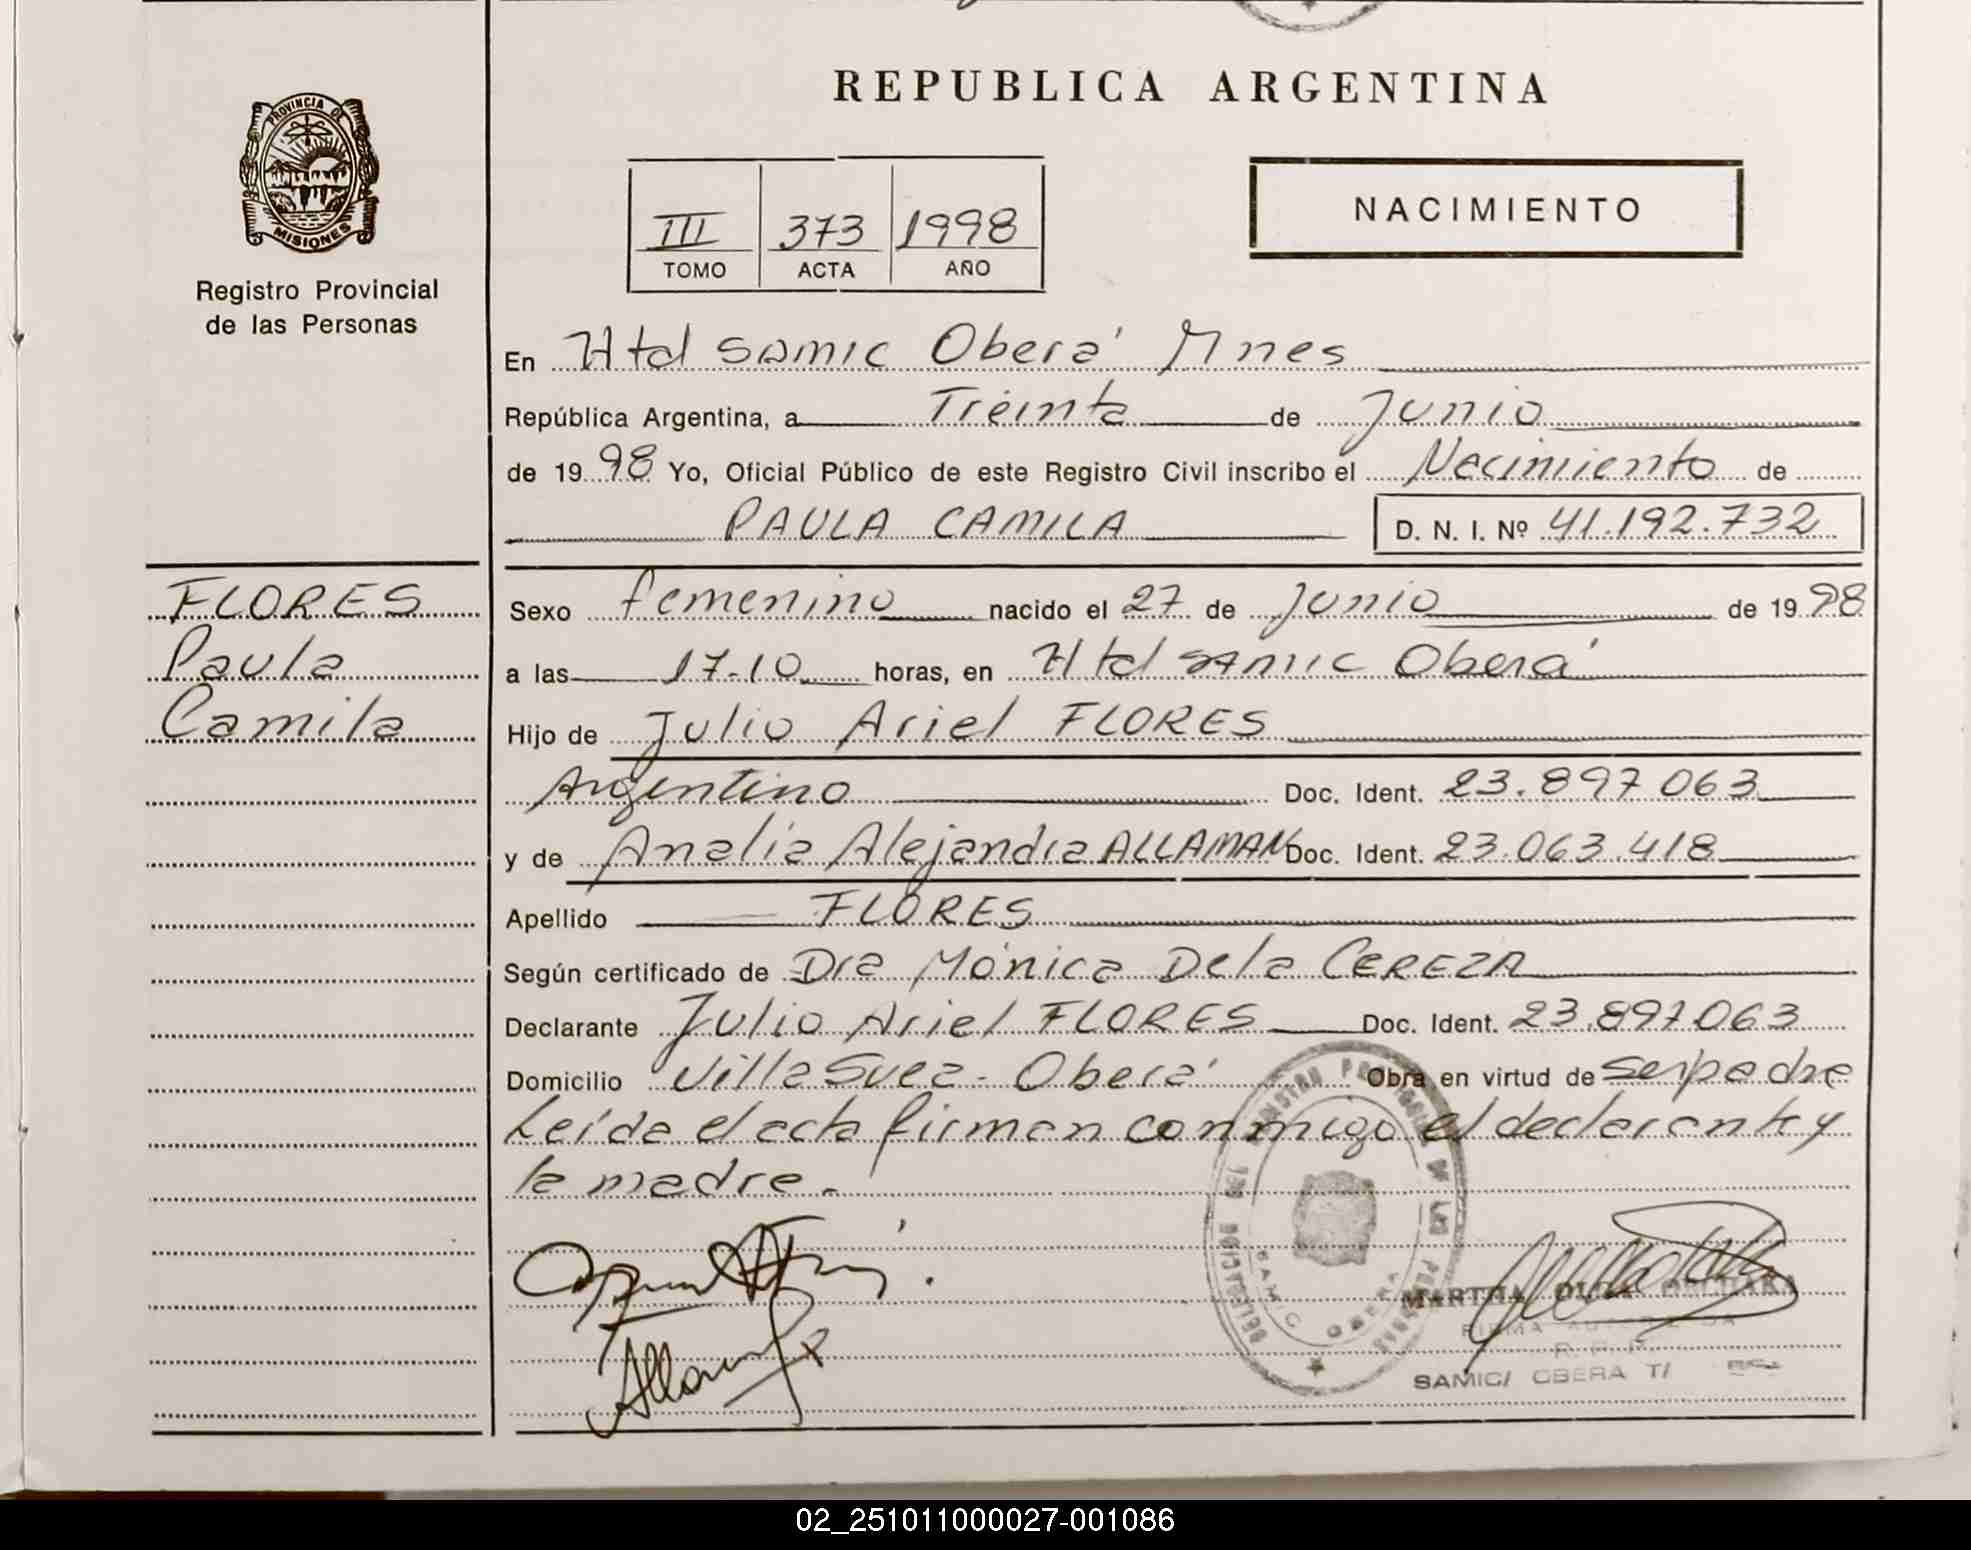 REPUBLICA ARGENTINA
PROVINCIA DE
MISIONES
Registro Provincial
de las Personas
III 373 1998
TOMO ACTA AÑO
NACIMIENTO
En Htal SAMIC Oberá Mnes
República Argentina, a Treinta de Junio
de 1998 Yo, Oficial Público de este Registro Civil inscribo el Nacimiento de
PAULA CAMILA D. N. I. Nº 41.192.732
FLORES
Paula
Camila
Sexo femenino nacido el 27 de Junio de 1998
a las 17-10 horas, en Htal SAMIC Oberá
Hijo de Julio Ariel FLORES
Argentino Doc. Ident. 23.897.063
y de Analia Alejandra ALLAMAN Doc. Ident. 23.063.418
Apellido FLORES
Según certificado de Dra Mónica De la CEREZA
Declarante Julio Ariel FLORES Doc. Ident. 23.897.063
Domicilio Villa Svea - Oberá Obra en virtud de ser padre
Leída el acta firman conmigo el declarante y
la madre.-
SAMIC OBERA
MARTHA
FIRMA
R. P. P.
SAMIC/ OBERA
02_251011000027-001086